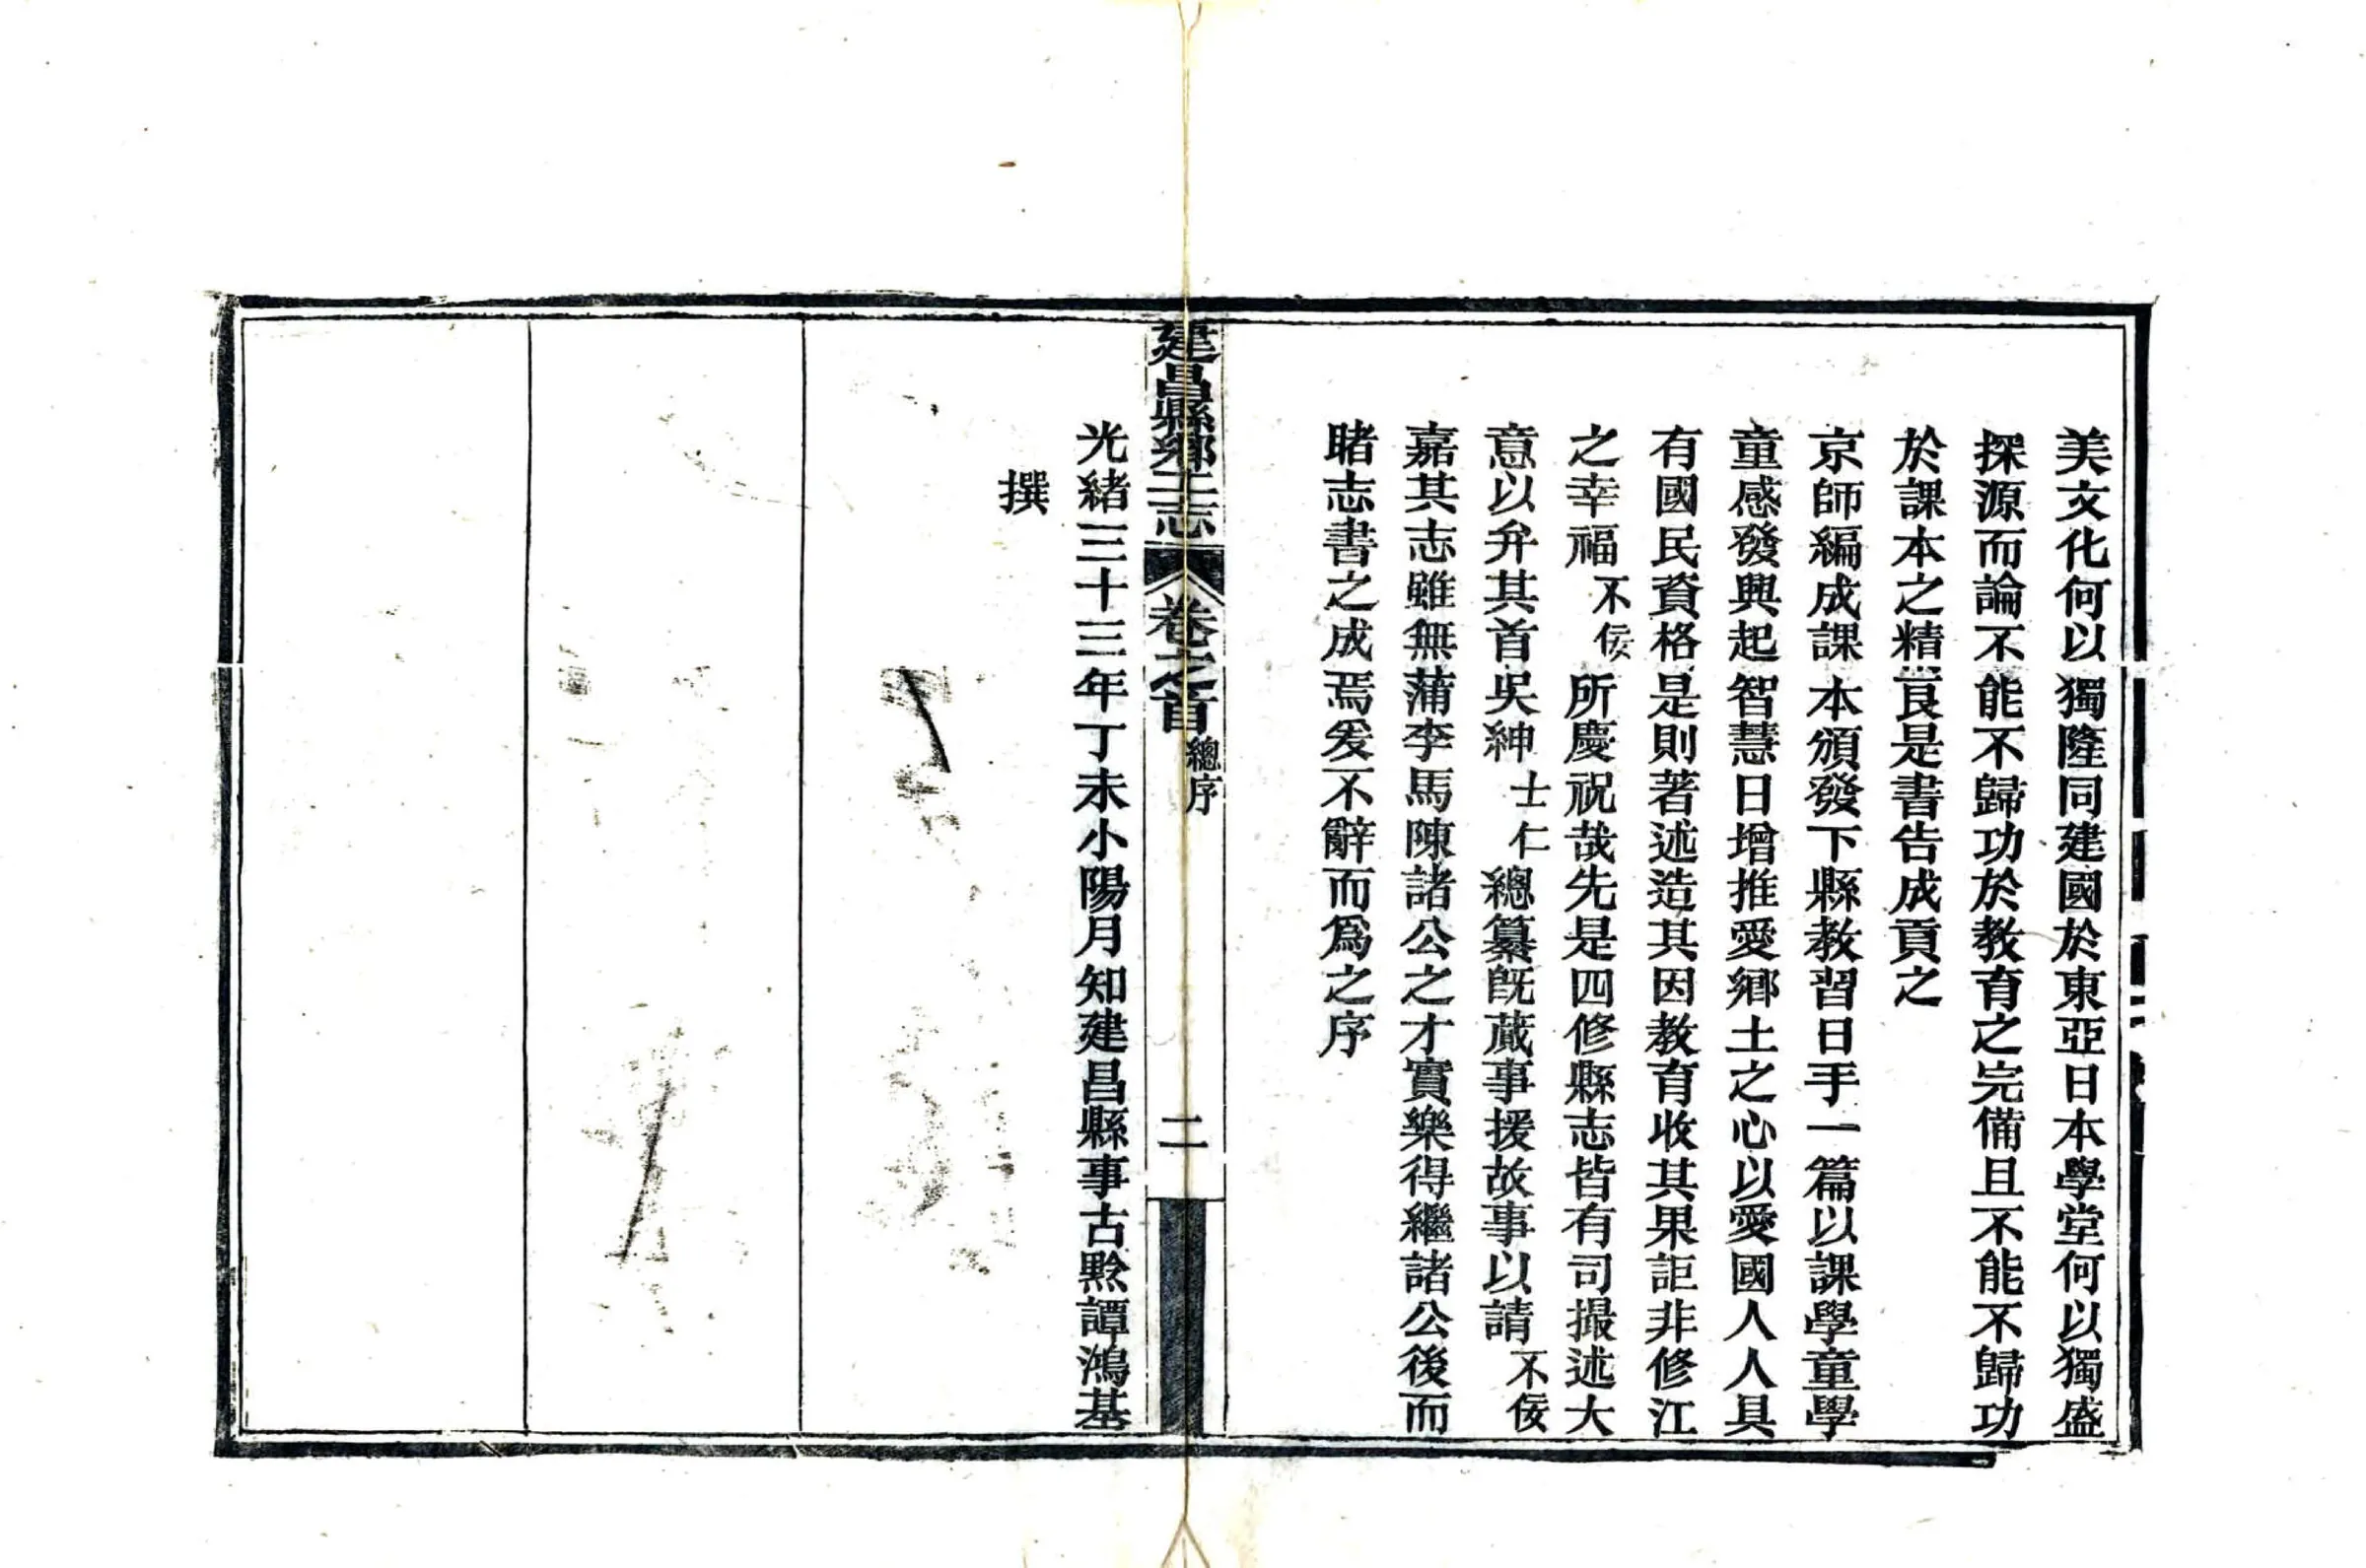 美文化何以獨隆同建國於東亞日本學堂何以獨盛
探源而論不能不歸功於教育之完備且不能不歸功
於課本之精良是書告成貢之
京師編成課本頒發下縣教習日手一篇以課學童學
童感發興起智慧日增推愛鄉土之心以愛國人人具
有國民資格是則著述造其因教育收其果詎非修江
之幸福不佞所慶祝哉先是四修縣志皆有司撮述大
意以弁其首吳紳士仁總纂旣蕆事援故事以請不佞
嘉其志雖無蒲李馬陳諸公之才實樂得繼諸公後而
睹志書之成焉爰不辭而爲之序
建昌縣鄉土志 卷之首 總序 二
光緒三十三年丁未小陽月知建昌縣事古黟譚鴻基
撰